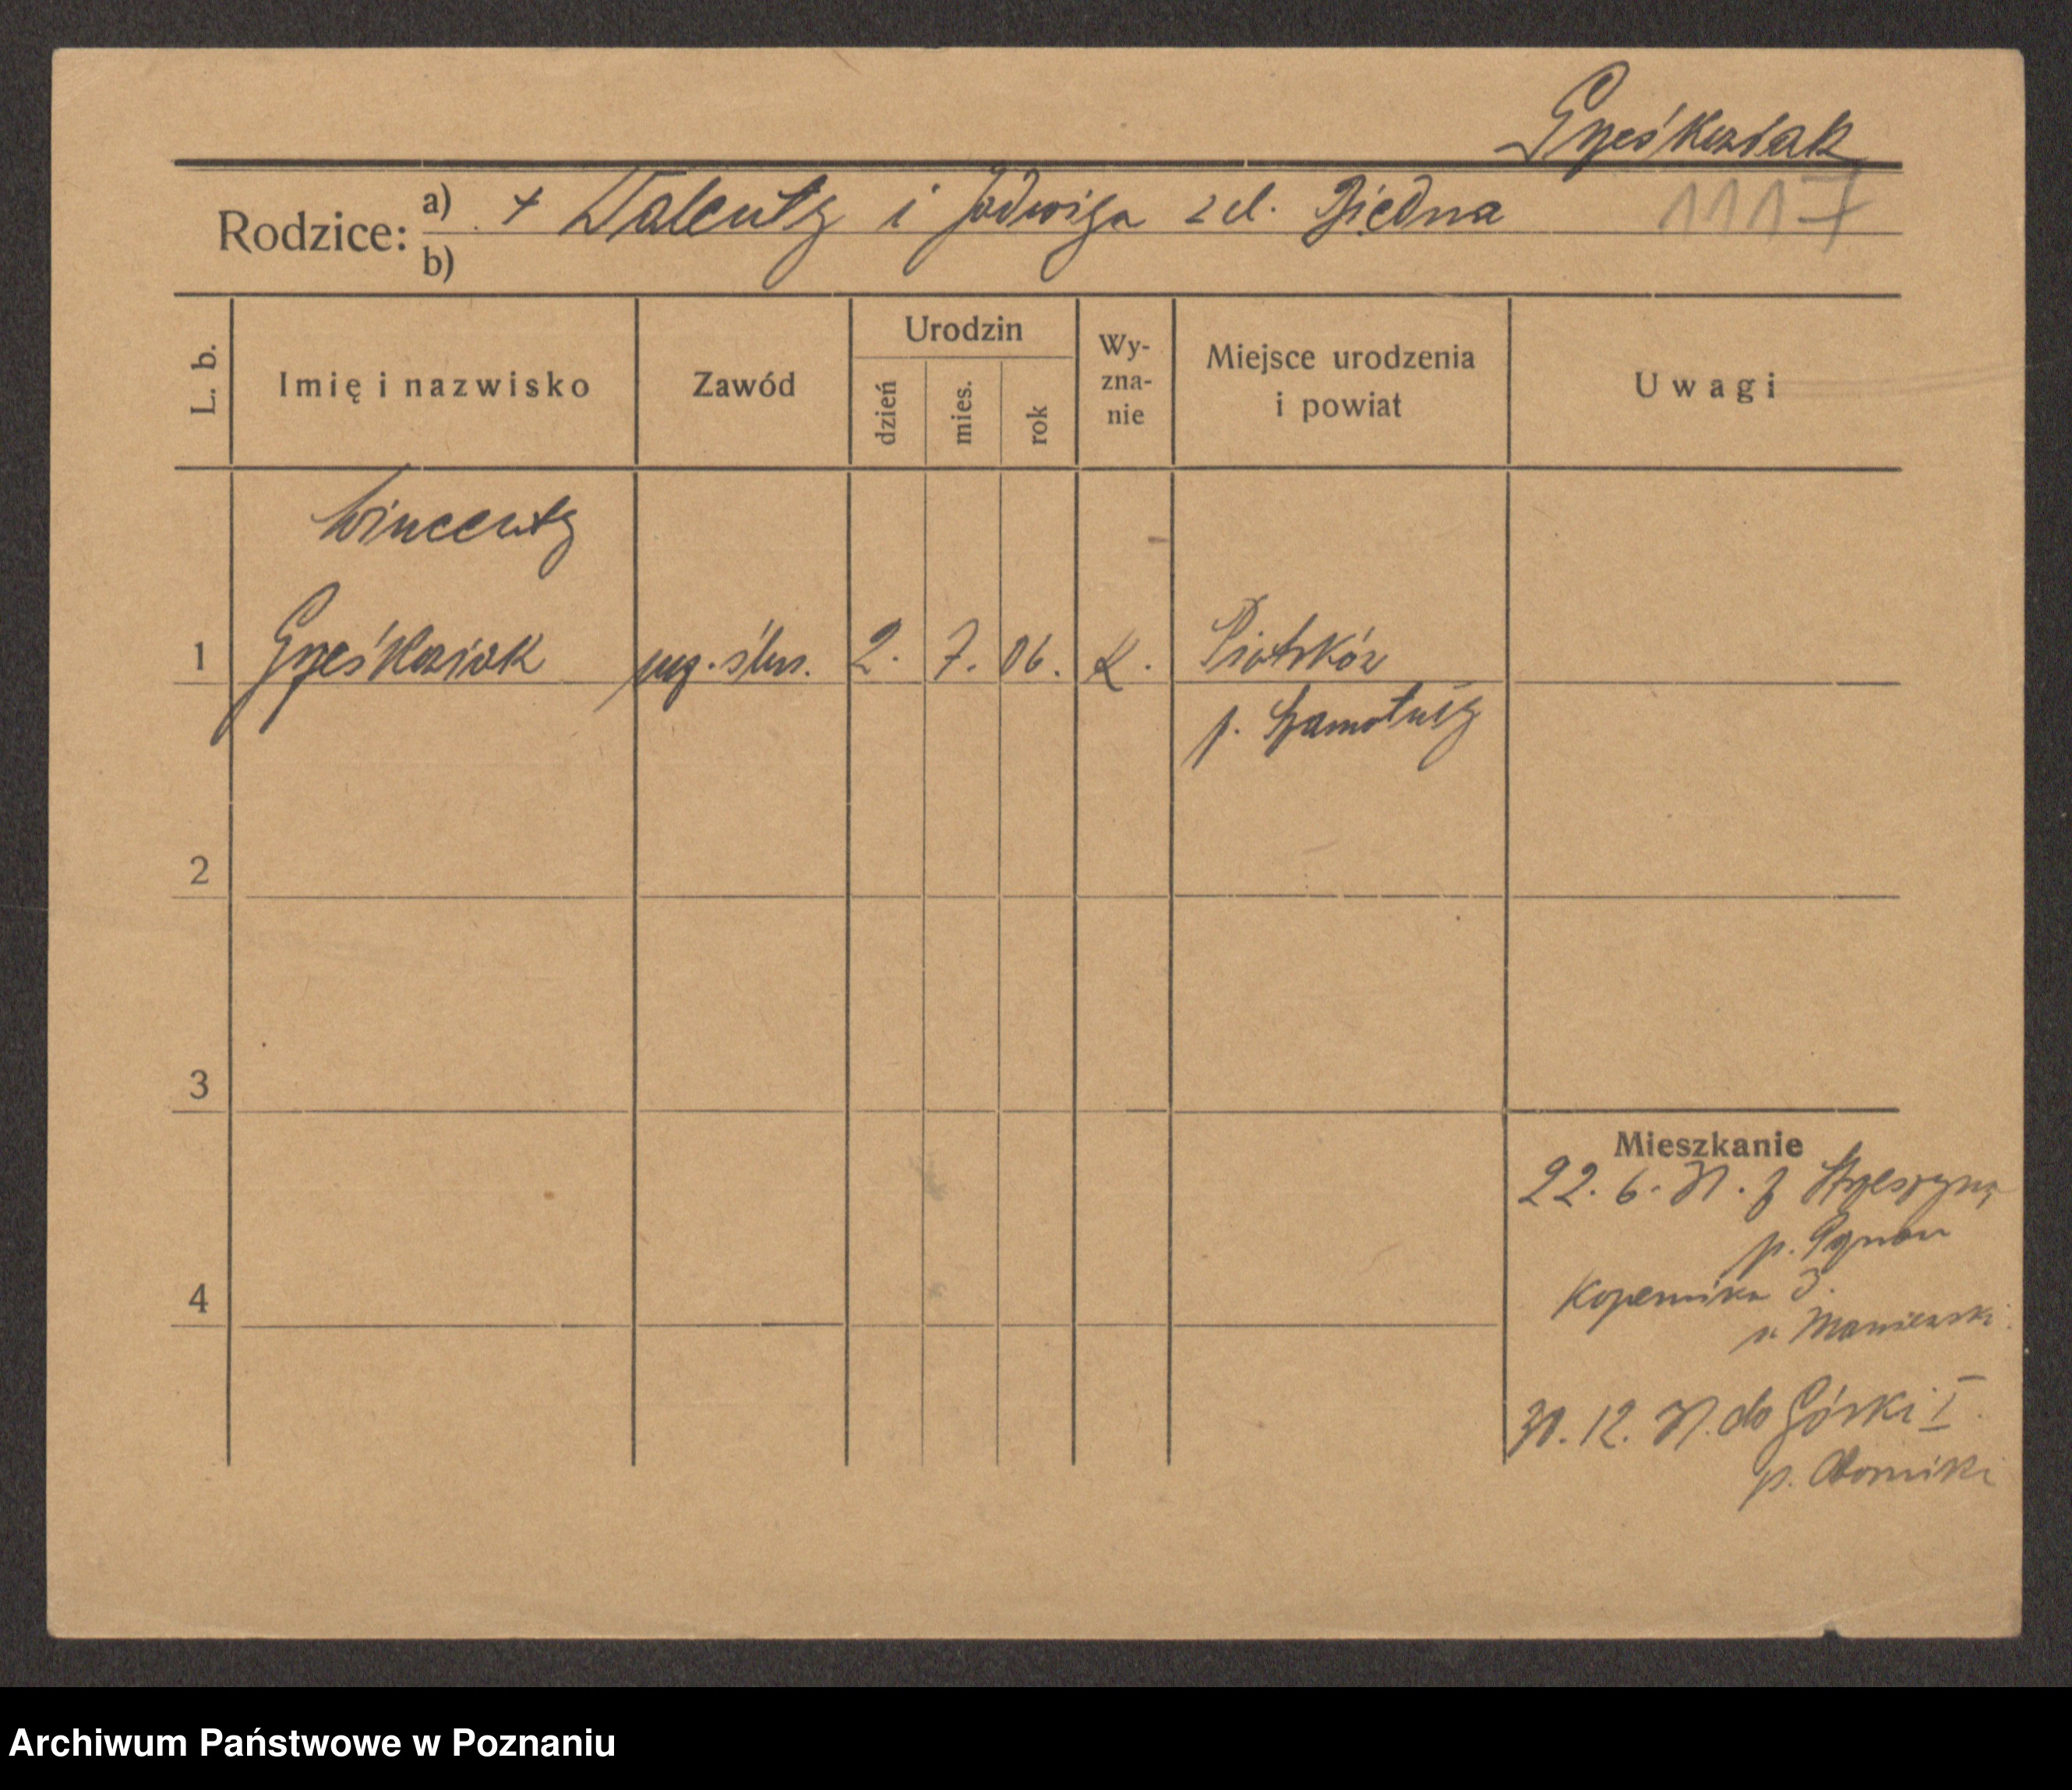 Grześkowiak
Rodzice:
a) + Walenty i Jadwiga z d. Biedna
1117
b)
L. b.
Imię i nazwisko
Zawód
Urodzin
dzień
mies.
rok
Wy-
zna-
nie
Miejsce urodzenia
i powiat
Uwagi
Wincenty
1 Grześkowiak 2. 7. 06. K. Piotrków
p. Szamotuły
2
3
4
Mieszkanie
22. 6. 31. z Strzeszyna
p. Poznań
Kopernika 3.
u Maniewski
30. 12. 31. do Górki I.
p. Oborniki
Archiwum Państwowe w Poznaniu